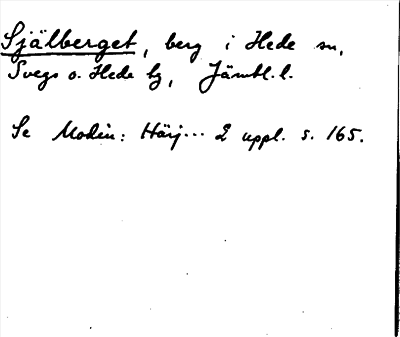 Själberget, berg i Hede sn,
Svegs o. Hede tg, Jämtl. l.
Se Modin: Härj... 2 uppl. s. 165.